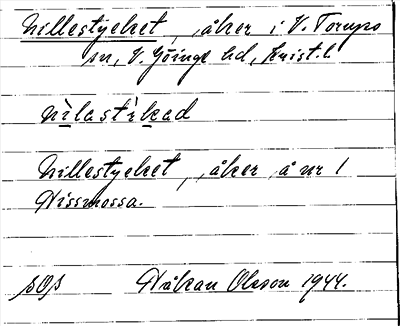 Nillestycket, åker i V. Torups
sn, V. Göinge hd, Krist. l.
nìlastìkad
Nillestycket, åker å nr 1
Nissmossa.
Håkan Olsson 1944.